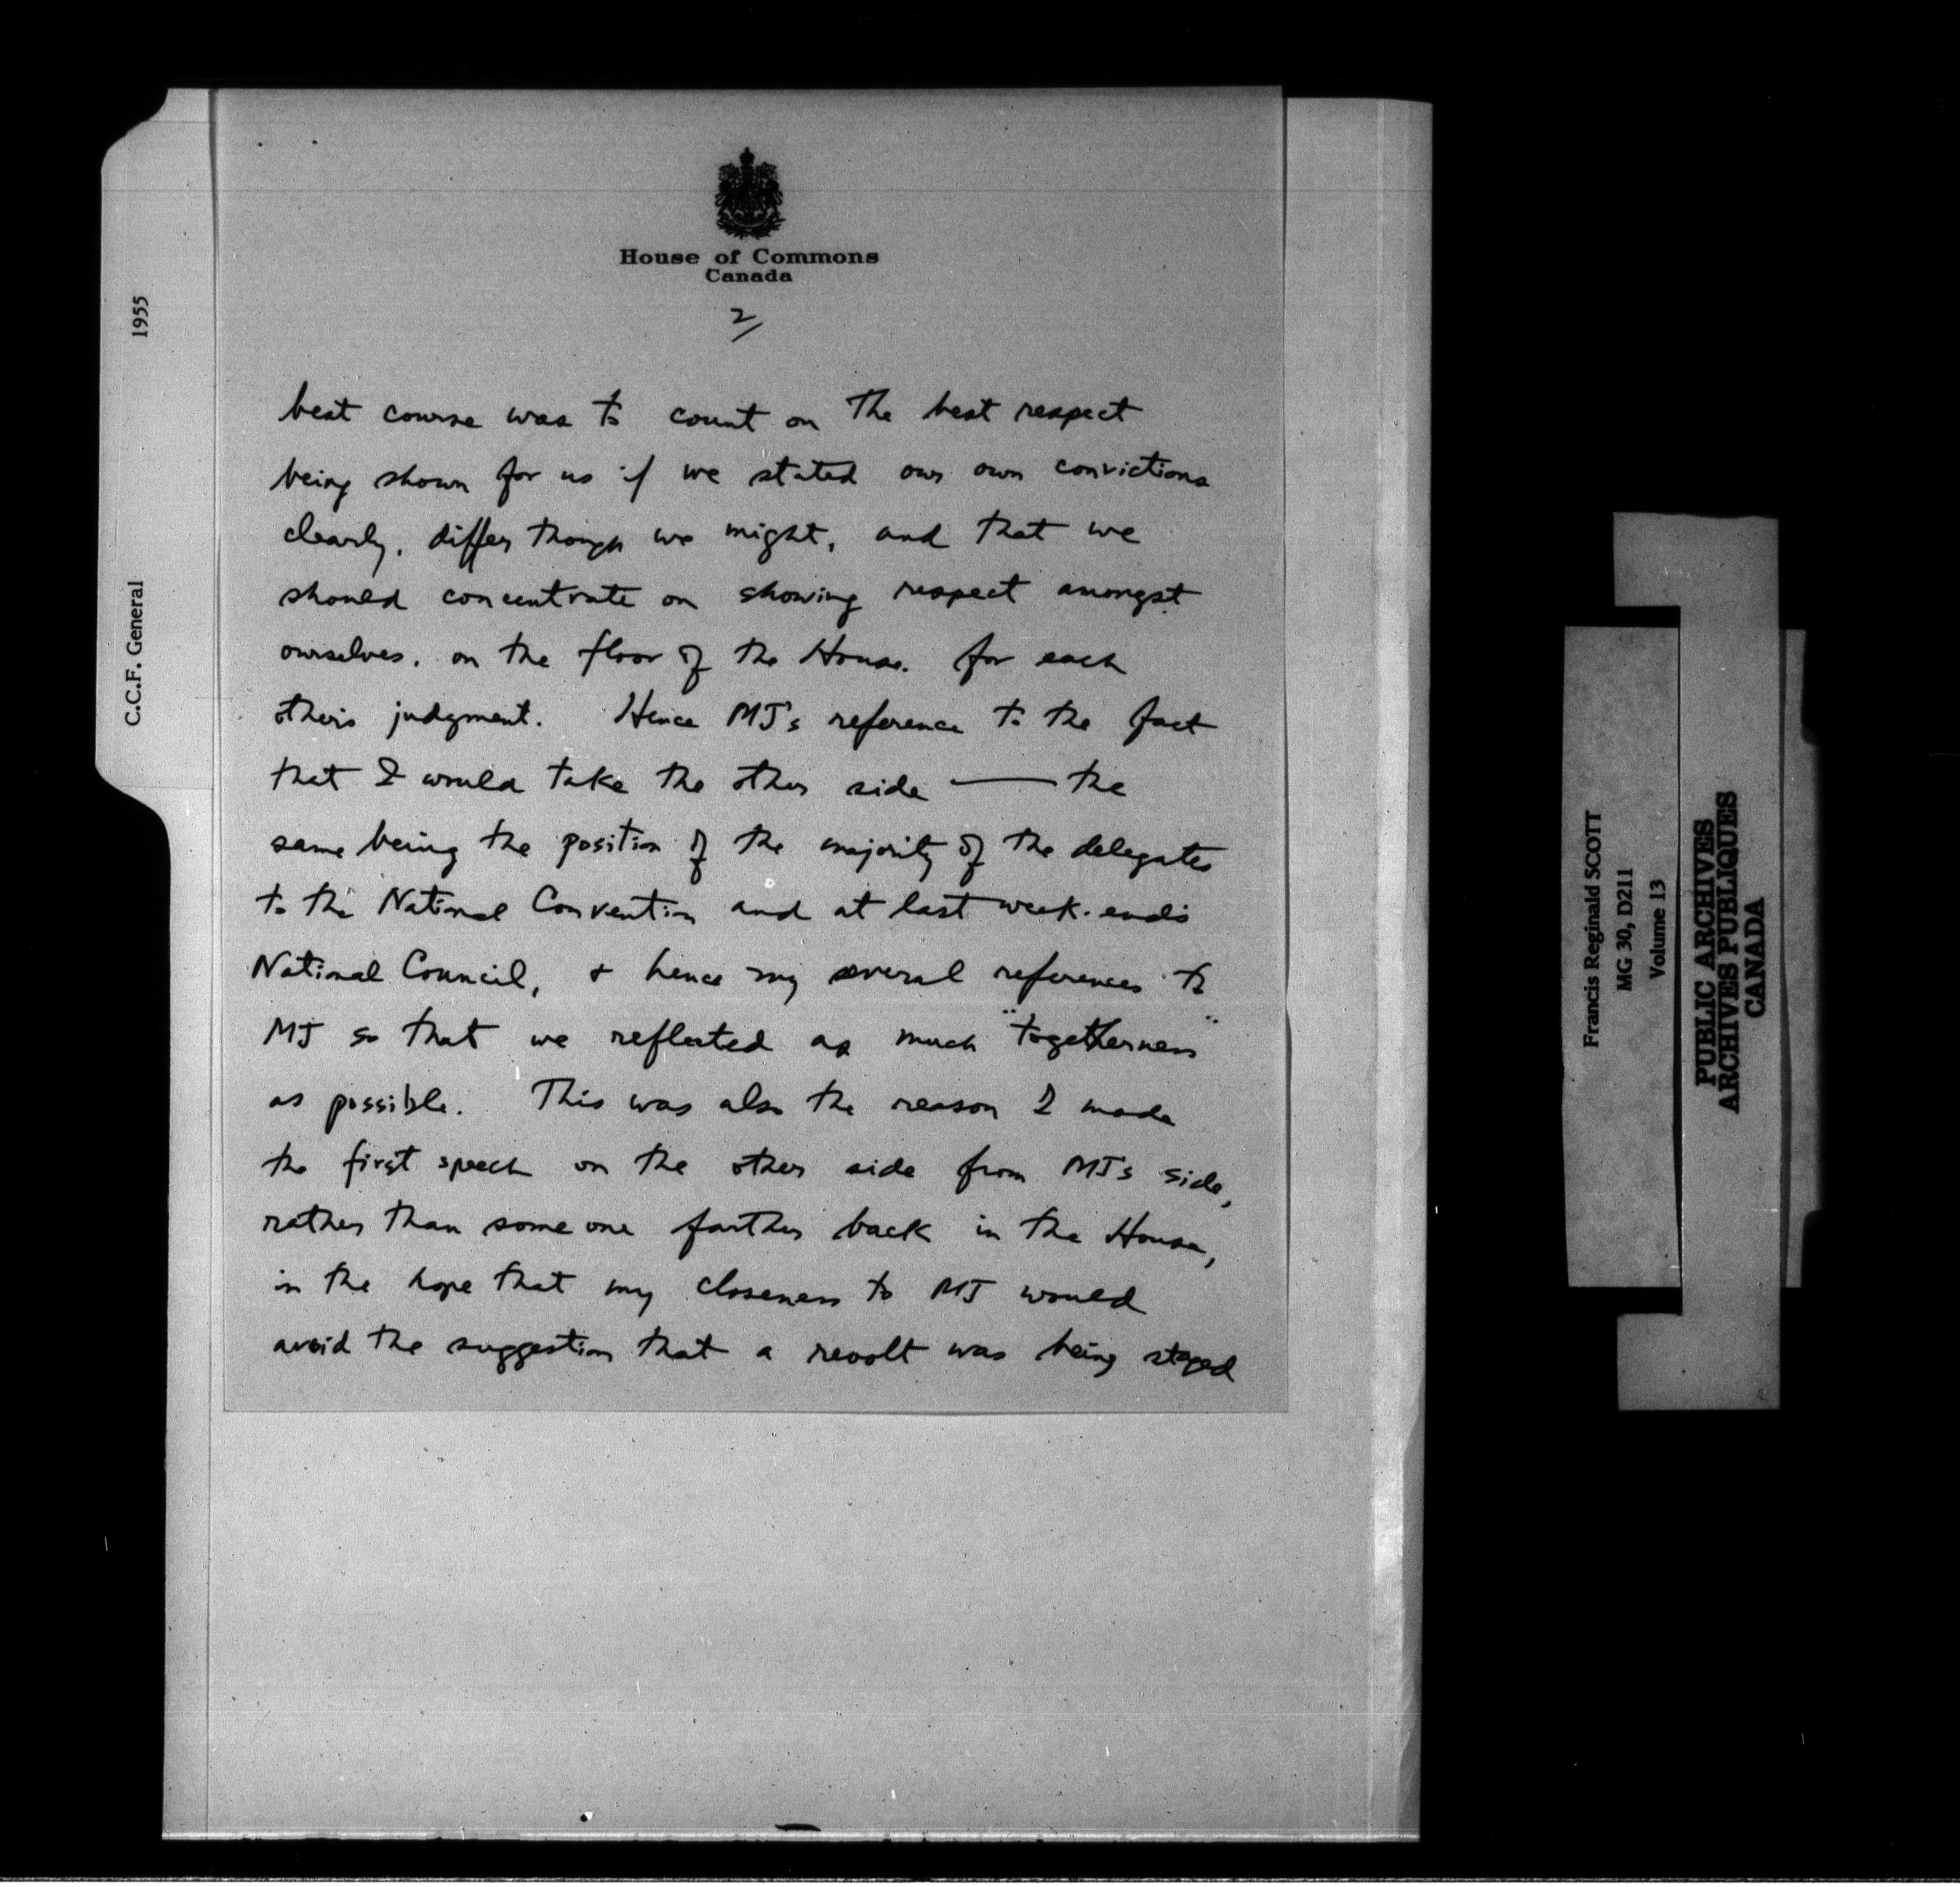 House of Commons
Canada
2/
best course was to count on the best respect
being shown for us if we stated our own convictions
clearly, differ though we might, and that we
should concentrate on showing respect amongst
ourselves, on the floor of the House, for each
other's judgment. Hence MJ's reference to the fact
that I would take the other side — the
same being the position of the majority of the delegates
to the National Convention and at last week-end's
National Council, & hence my several references to
MJ so that we reflected as much "togetherness"
as possible. This was also the reason I made
the first speech on the other side from MJ's side,
rather than some one farther back in the House,
in the hope that my closeness to MJ would
avoid the suggestion that a revolt was being staged
1955
C.C.F. General
Francis Reginald SCOTT
MG 30, D211
Volume 13
PUBLIC ARCHIVES
ARCHIVES PUBLIQUES
CANADA